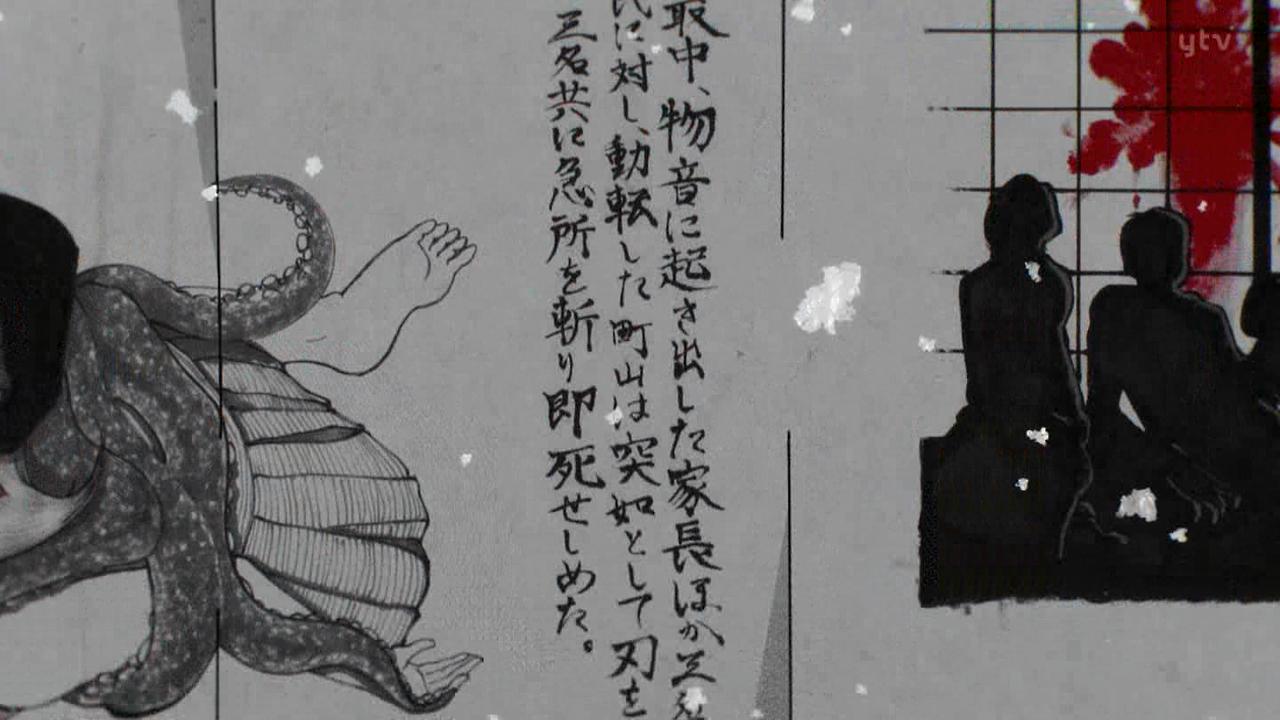 取中、物音に起き出した家長ほか三名
氏に対し、動転した町山は突如として刃を
三名共に急所を斬り即死せしめた。
ytv